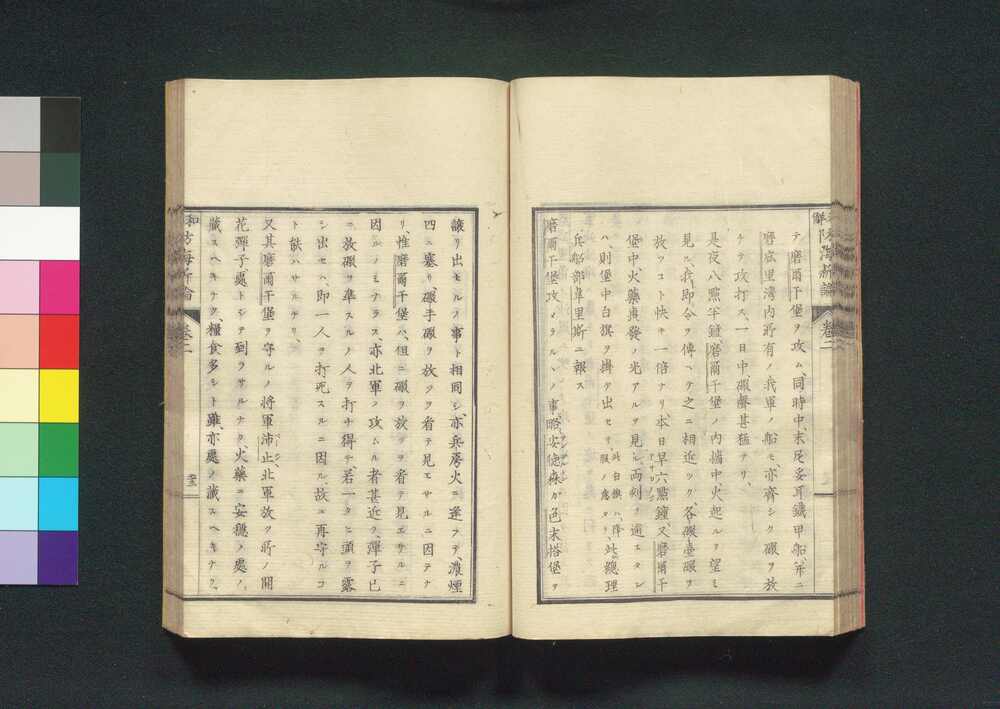 和解防海新論　卷二
テ磨爾干堡ヲ攻ム、同時中、末尼多耳鐵甲船、并ニ
磨底里灣内所有ノ我軍ノ船モ、亦齊シク礟ヲ放
チテ攻打ス、一日中礟聲甚猛ナリ、
是夜八點半鐘、磨爾干堡ノ内墻中、火起ルヲ望ミ
見ル、我即令ヲ傳ヘテ之ニ相近ツク各礟臺礟ヲ
放ツコト快キ一倍ナリ、本日早六點鐘、又磨爾干
堡中、火藥轟發ノ光アルヲ見ル、兩刻ヲ過エタシ
ハ、則堡中白旗ヲ掛ケ出セリ、此總理
兵船部韋里斯ニ報ス
磨爾干堡攻メラルヽノ事略、安德森カ色末撘堡ヲ
讓リ出セルノ事ト相同シ、亦兵房火ニ逢フテ、濃煙
四ニ塞リ、礟手礟ヲ放ツヲ看テ見エサルニ因テナ
リ、惟磨爾干堡ハ、但ニ礟ヲ放ツヲ看テ見エサルニ
因ルノミナラス、亦北軍ノ攻ムル者甚近ク、彈子已
ニ放礟ヲ準スルノ人ヲ打チ得テ、若一タヒ頭ヲ露
シ出セハ、即一人ヲ打死スルニ因ル、故ニ再守ルコ
ト能ハサルナリ、
又其磨爾干堡ヲ守ルノ將軍沛止、北軍放ツ所ノ開
花彈子、處トシテ到ラサルナク、火藥ニ安穩ノ處ノ
藏スヘキナク、糧食多シト雖、亦處ノ藏スヘキナク、
和解防海新論　卷二